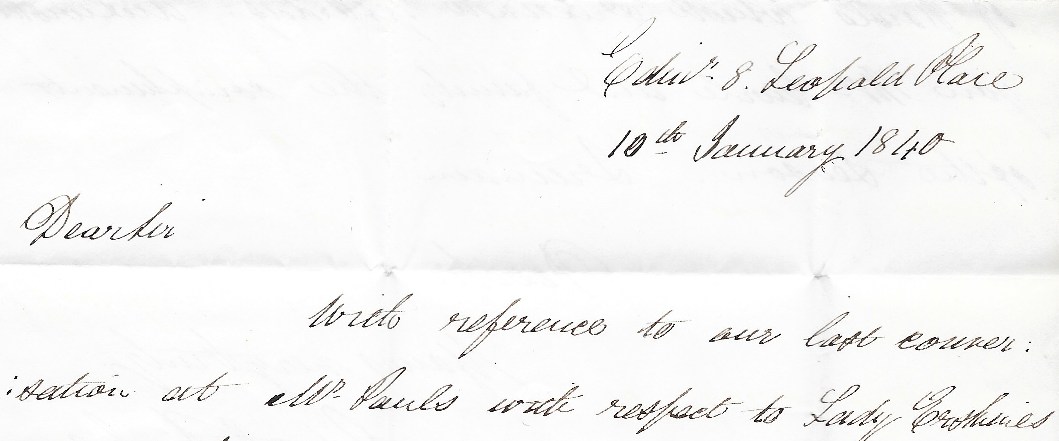 Edinr. 8. Leopold Place
10th January 1840
Dear Sir
With reference to our last conver:
:sation at Mr. Pauls with respect to Lady Erskines